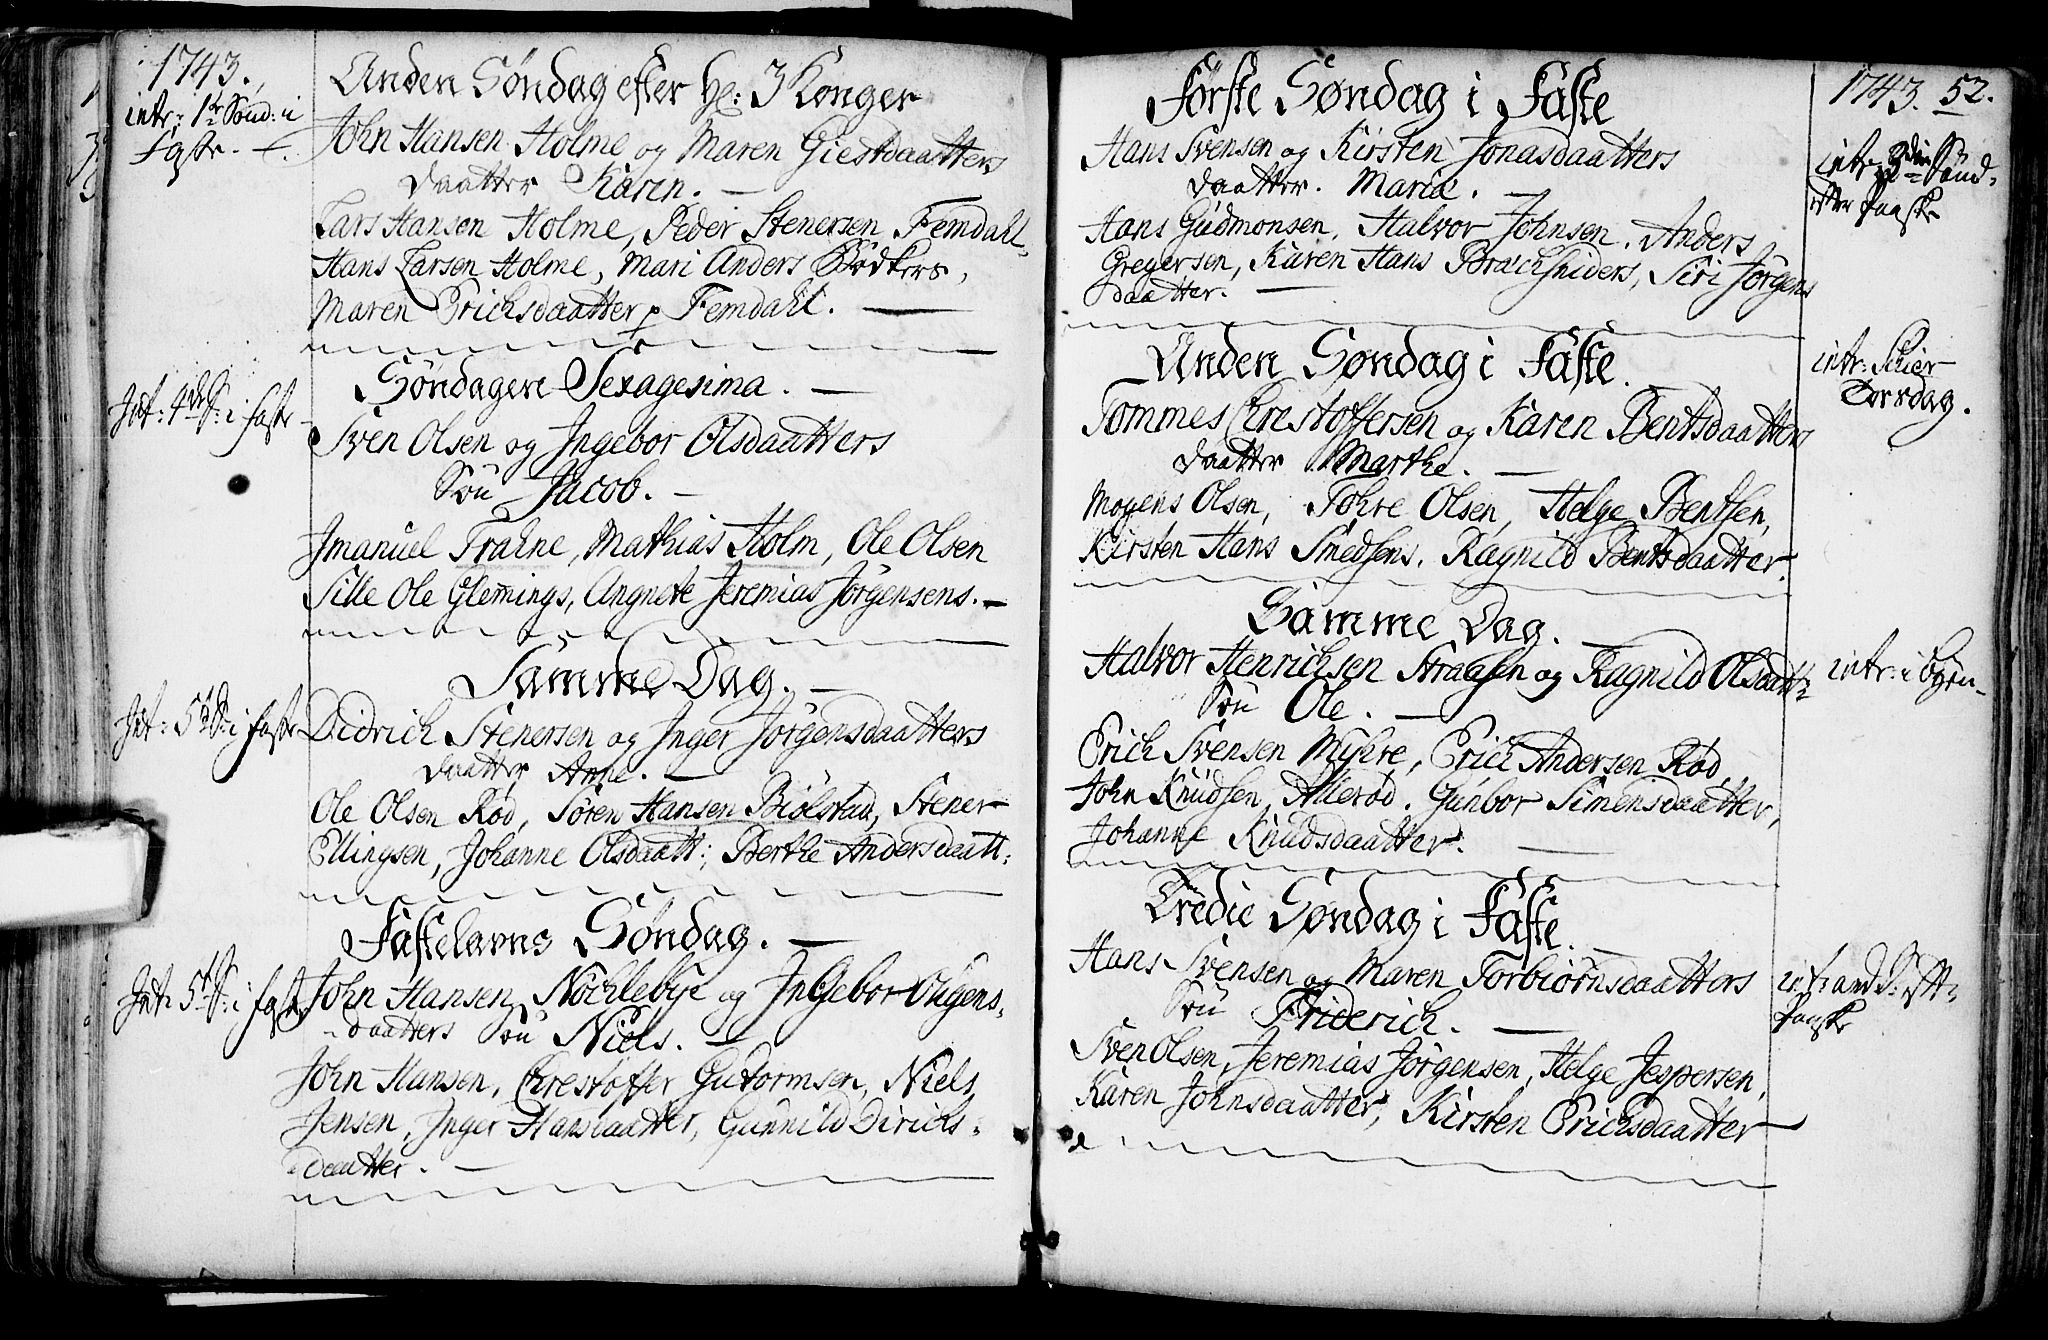 1743.
intr: 1te Sönd: i
Faste.
Anden Söndag efter H: 3 Konger
John Hansen Holme og Maren Giestdaatters
daatter Karen.
Lars Hansen Holme, Peder Stenersen Femdahl,
Hans Larsen Holme, Mari Anders Bödkers,
Maren Erichsdaatter p Femdahl.
Int: 4de S: i faste
Söndagen Sexagesima.
Sven Olsen og Ingebor Olsdaatters
Sön Jacob.
Imanuel Trahne, Mathias Holm, Ole Olsen
Sille Ole Glemings, Angnete Jeremias Jörgensens.
Samme Dag.
Int: 5t S: i faste
Didrich Stenersen og Inger Jörgensdaatters
daatter Anne.
Ole Olsen Röd, Sören Hansen Biölstad, Stener
Ellingsen, Johanne Olsdaatt:, Berthe Andersdaatt:
Fastelavns Söndag.
Int: 5t S: i faste
John Hansen Nöchlebye og Ingebor
daatters Sön Niels.
John Hansen, Chrestoffer Gutormsen, Niels
Jensen, Inger Hansdaatter, Gunnild Dirichs
daatter.
1743. 52.
Förste Söndag i Faste
Hans Svensen og Kirsten Jonasdaatters
daatter. Mariæ.
intr: 2den Sönd
efter Paaske
Hans Gudmonsen, Halvor Johnsen, Anders
Gregersen, Karen Hans Brachsniders, Siri Jörgens
daatter.
Anden Söndag i Faste.
intr: Schier
Torsdag.
Tommes Chrestoffersen og Karen Bentsdaatters
daatter Marthe.
Mogens Olsen, Tohre Olsen, Helge Bentsen,
Kirsten Hans Smedsens, Ragnild Bentsdaatter.
Samme Dag.
Halvor Henrichsen Straasen og Ragnild Olsdaatt:
Sön Ole.
intr: i Byen
Erich Svensen Myhre, Erich Andersen Röd,
John Knudsen Alleröd, Gunbor Simensdaatter,
Johanne Knudsdaatter.
Tredie Söndag i Faste.
Hans Svensen og Maren Torbiörnsdaatters
Sön Friderich.
intr: and S: eft
Paaske
Sven Olsen, Jeremias Jörgensen, Helge Jespersen,
Karen Johnsdaatter, Kirsten Erichsdaatter